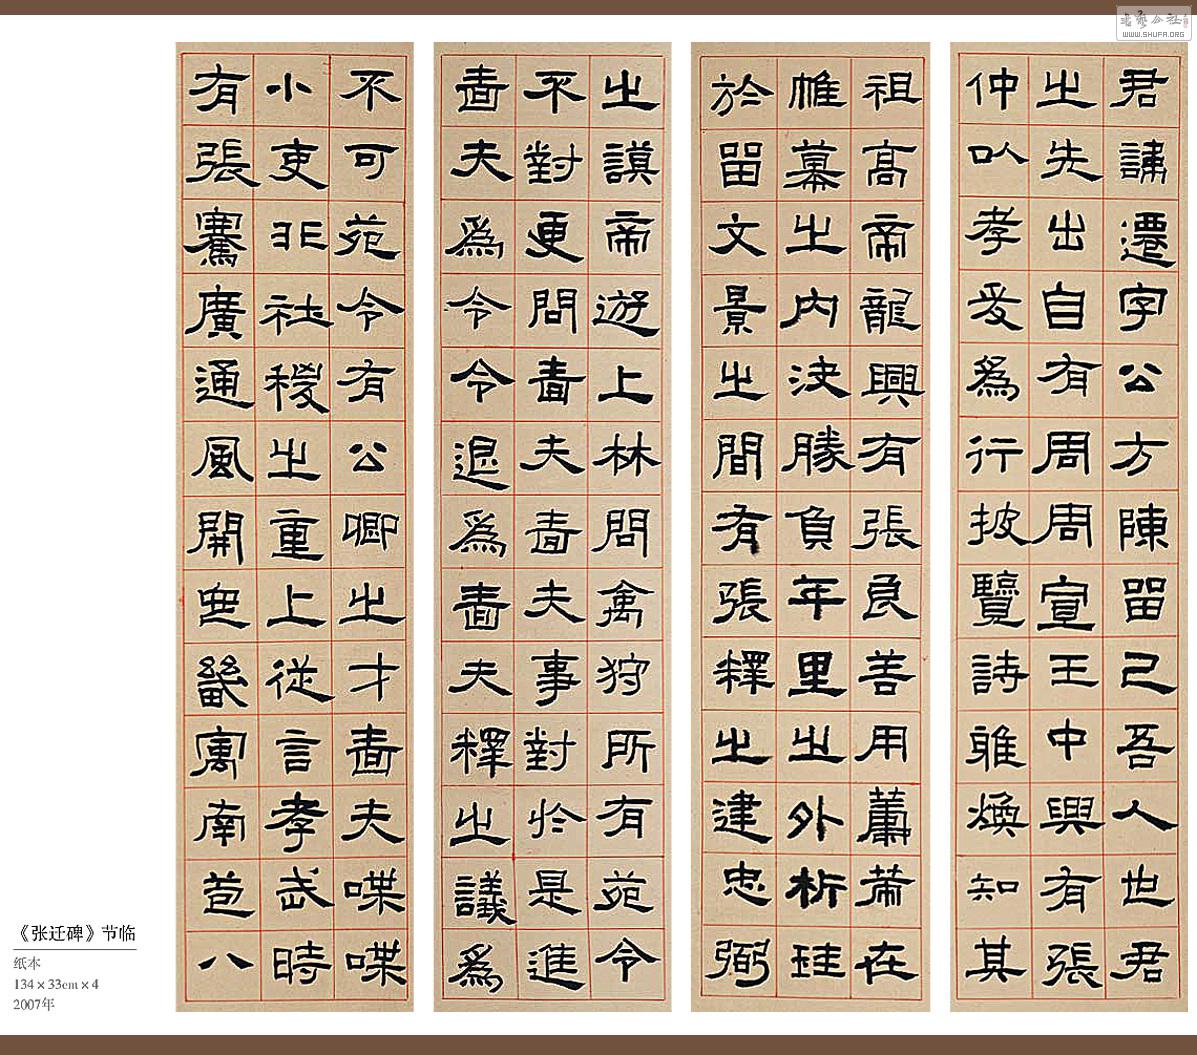 君諱遷字公方陳留己吾人世君
之先出自有周周宣王中興有張
仲以孝友爲行披覽詩雅煥知其
祖高帝龍興有張良善用籌策在
帷幕之內決勝負千里之外析珪
於留文景之間有張釋之建忠弼
之謨帝遊上林問禽狩所有苑令
不對更問嗇夫嗇夫事對於是進
嗇夫爲令令退爲嗇夫釋之議爲
不可苑令有公卿之才嗇夫喋喋
小吏非社稷之重上從言孝武時
有張騫廣通風俗開定畿寓南苞八
《张迁碑》节临
纸本
134×33cm×4
2007年
书艺公社
WWW.SHUFA.ORG